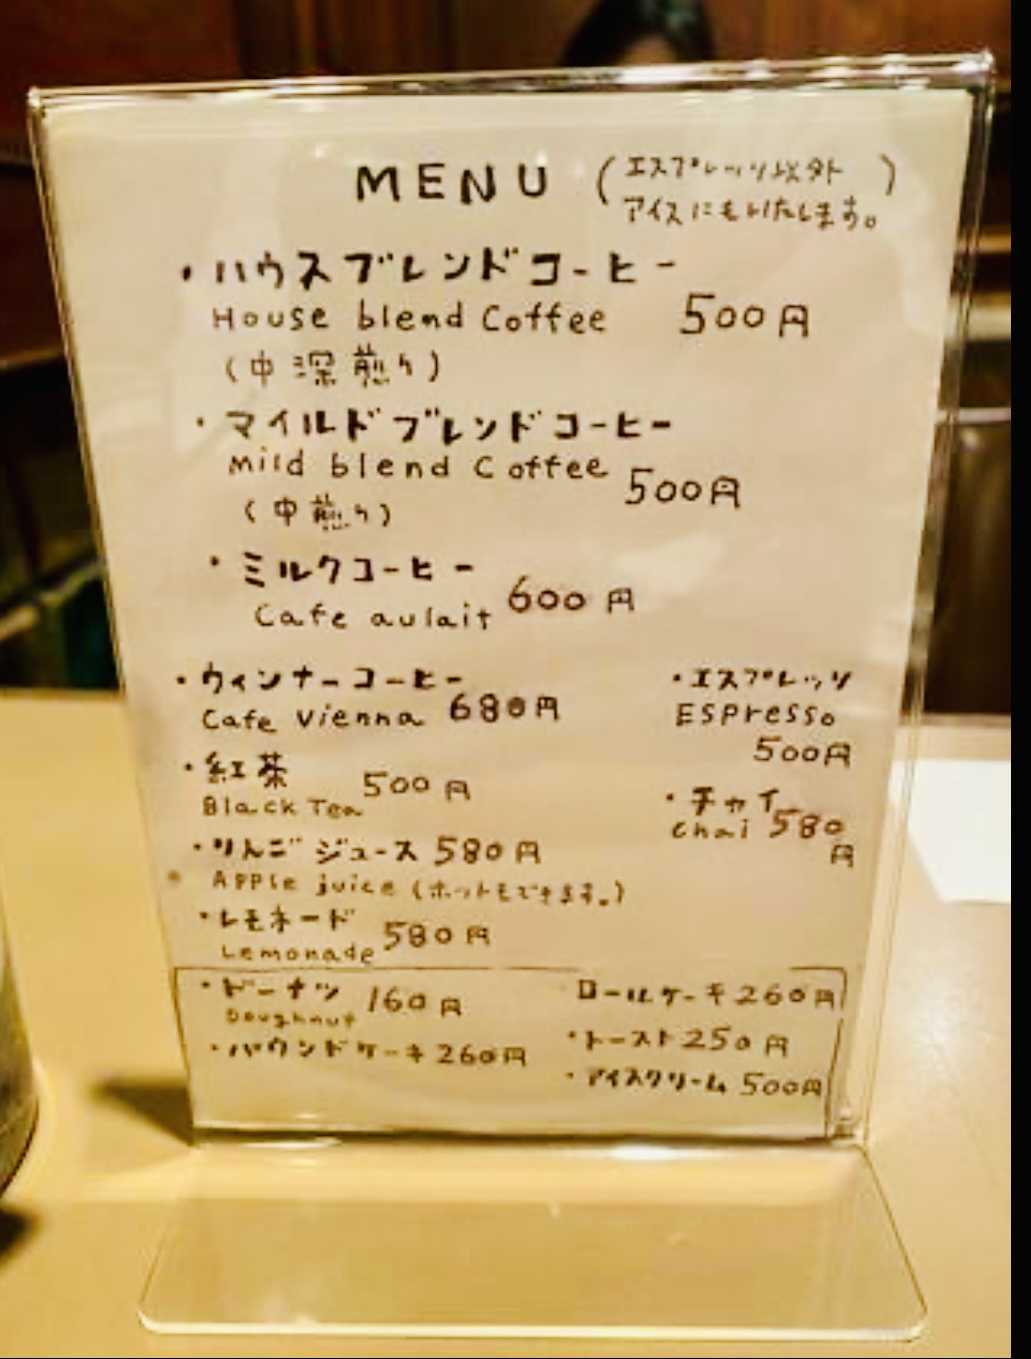 MENU (エスプレッソ以外
アイスにもいたします。)
・ハウスブレンドコーヒー
House blend Coffee 500円
(中深煎り)
・マイルドブレンドコーヒー
Mild blend Coffee 500円
(中煎り)
・ミルクコーヒー
Cafe aulait 600円
・ウィンナーコーヒー
Cafe Vienna 680円
・エスプレッソ
ESPresso
500円
・紅茶
Black Tea 500円
・チャイ
Chai 580
円
・りんごジュース 580円
APPle juice (ホットもできます。)
・レモネード
Lemonade 580円
・ドーナツ
Doughnut 160円
・パウンドケーキ 260円
ロールケーキ 260円
・トースト 250円
・アイスクリーム 500円